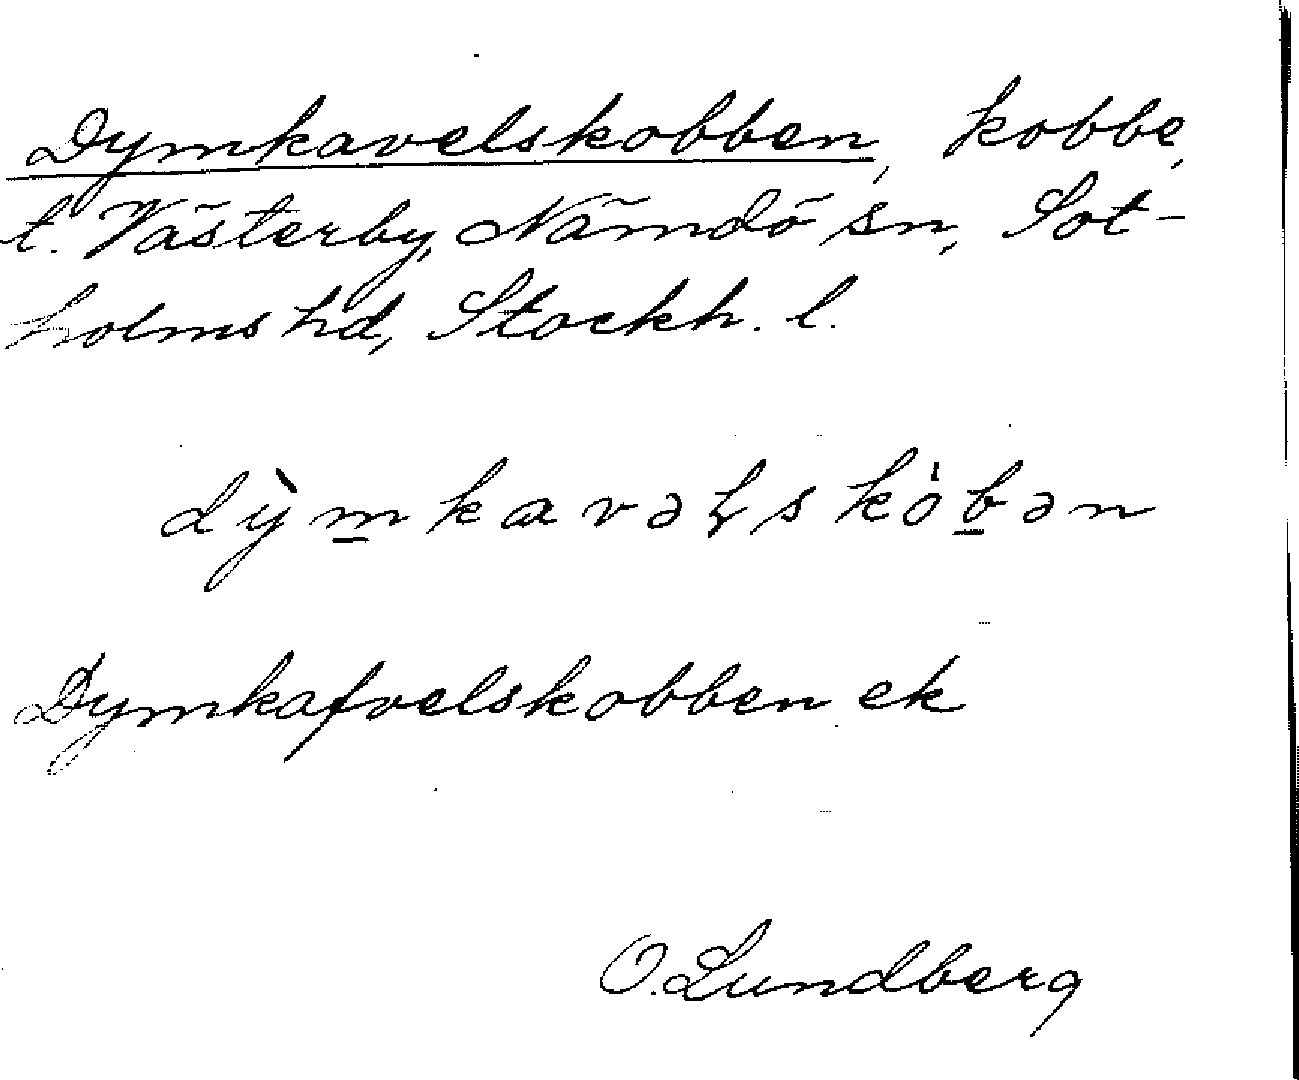 Dymkavelskobben, kobbe,
t. Västerby, Nämdö sn, Sot-
holms hd, Stockh. l.
dỳm̲kavəɫskȯb̲ən
Dymkafvelskobben ek
O. Lundberg